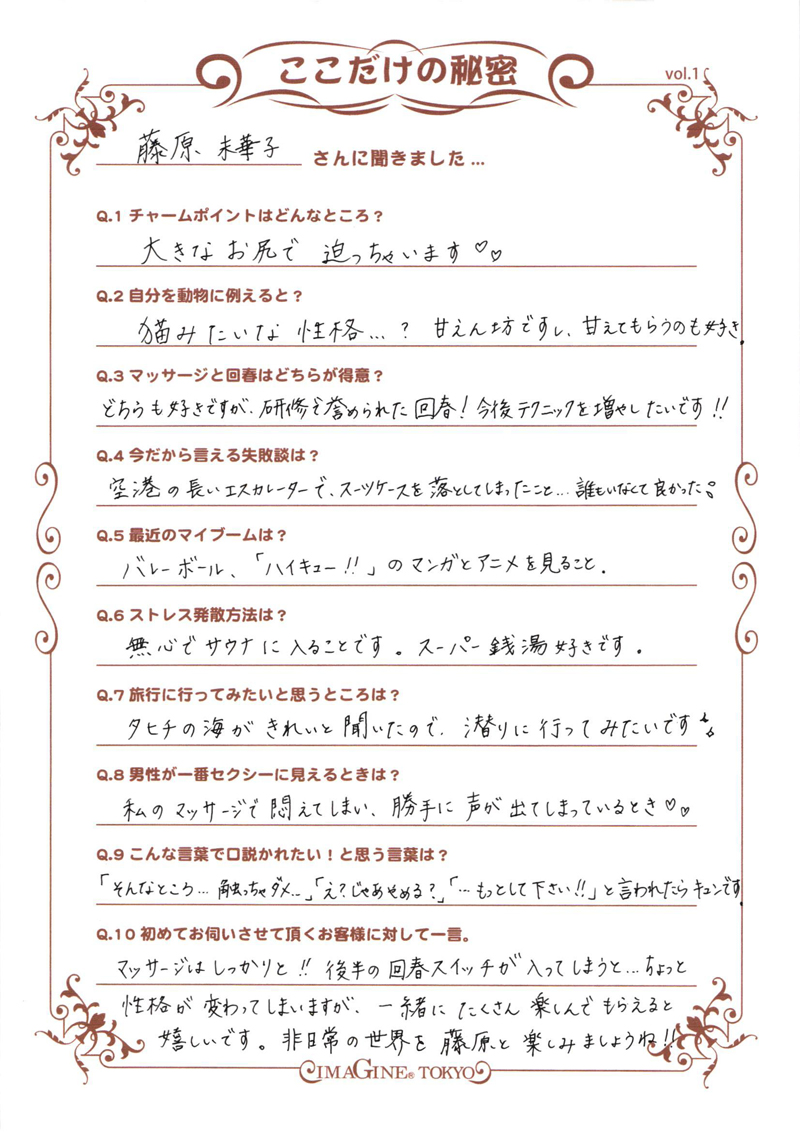 ここだけの秘密
vol.1
藤原 未華子 さんに聞きました...
Q.1 チャームポイントはどんなところ？
大きなお尻で 迫っちゃいます♡♡
Q.2 自分を動物に例えると？
猫みたいな性格…？ 甘えん坊ですし、甘えてもらうのも好き。
Q.3 マッサージと回春はどちらが得意？
どちらも好きですが、研修で誉められた回春！今後テクニックを増やしたいです!!
Q.4 今だから言える失敗談は？
空港の長いエスカレーターで、スーツケースを落としてしまったこと…誰もいなくて良かった。
Q.5 最近のマイブームは？
バレーボール、「ハイキュー!!」のマンガとアニメを見ること。
Q.6 ストレス発散方法は？
無心でサウナに入ることです。スーパー銭湯好きです。
Q.7 旅行に行ってみたいと思うところは？
タヒチの海がきれいと聞いたので、潜りに行ってみたいです
Q.8 男性が一番セクシーに見えるときは？
私のマッサージで悶えてしまい、勝手に声が出てしまっているとき♡♡
Q.9 こんな言葉で口説かれたい！と思う言葉は？
「そんなところ…触っちゃダメ…」「え？じゃあやめる？」「…もっとして下さい!!」と言われたらキュンです。
Q.10 初めてお伺いさせて頂くお客様に対して一言。
マッサージはしっかりと!! 後半の回春スイッチが入ってしまうと…ちょっと
性格が変わってしまいますが、一緒にたくさん楽しんでもらえると
嬉しいです。非日常の世界を藤原と楽しみましょうね!!
IMAGINE® TOKYO